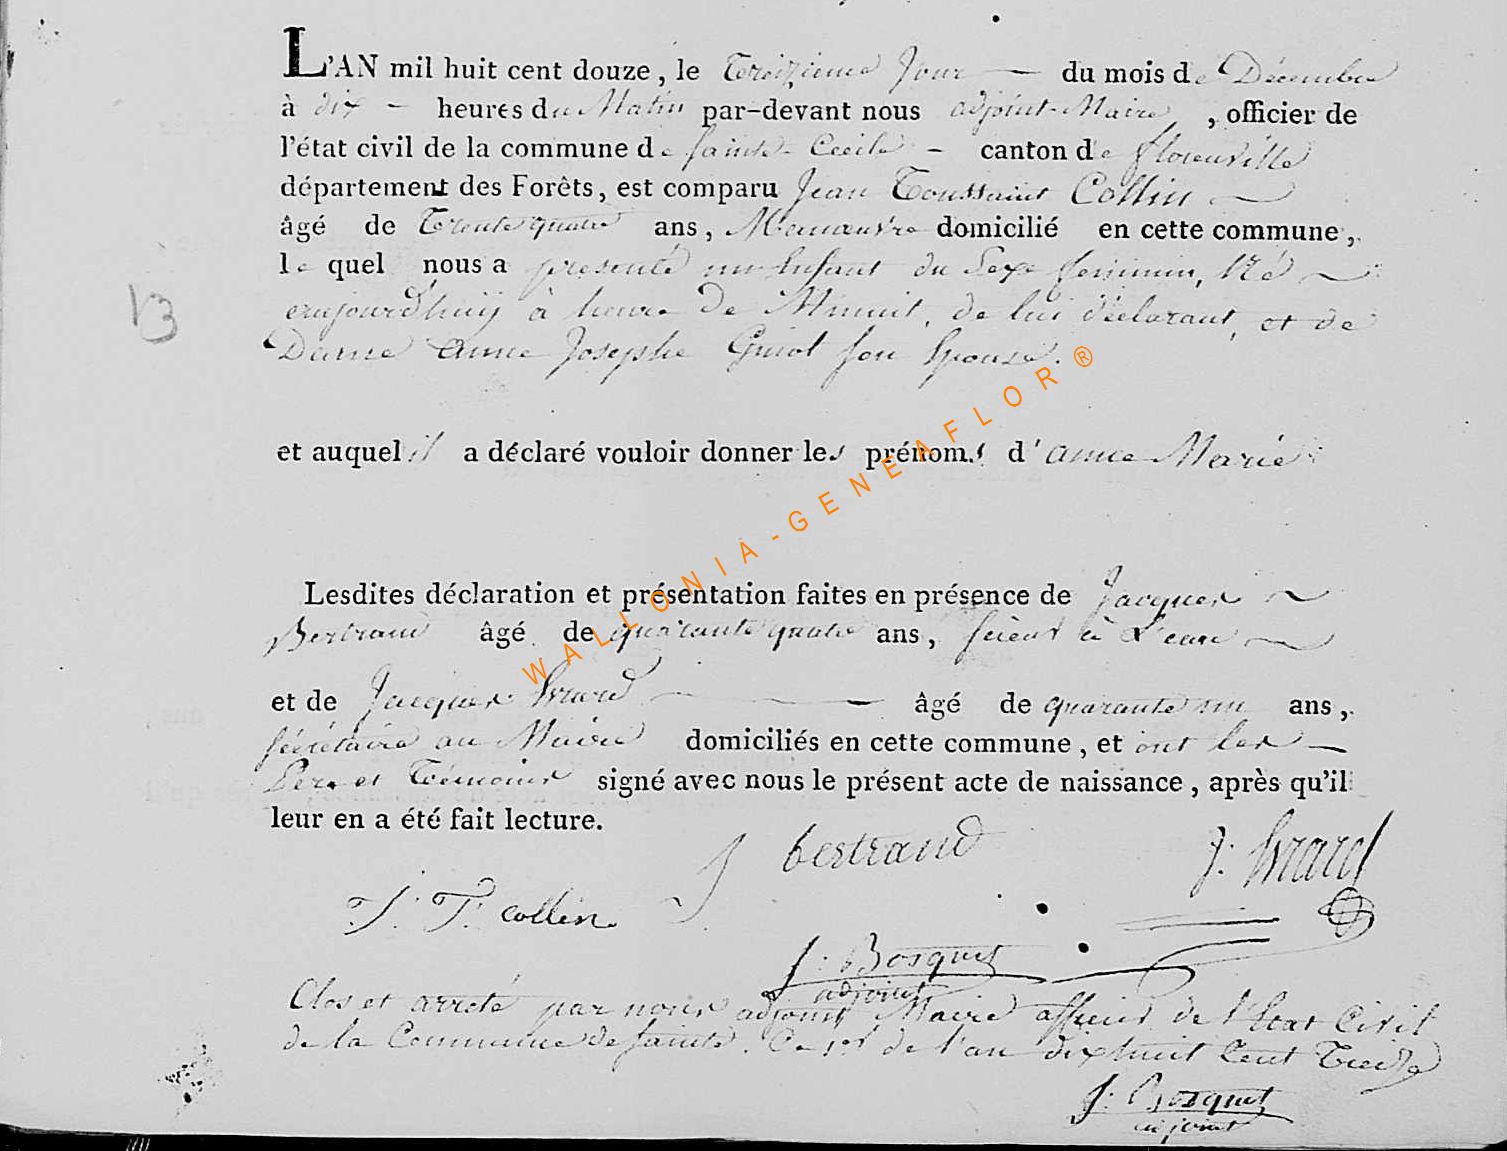 L'AN mil huit cent douze, le Treizieme Jour — du mois de Décembre
à dix – heures du Matin par-devant nous adjoint-Maire, officier de
l'état civil de la commune de sainte-Cecile – canton de florenville
département des Forêts, est comparu Jean Toussaint Collin —
âgé de Trente quatre ans, Manœuvre domicilié en cette commune,
le quel nous a presenté un Enfant du Sexe feminin, Né —
13
aujourd'huij à heure de Minuit, de lui déclarant, et de
Dame anne Josephe Guiot son Epouse.
et auquel il a déclaré vouloir donner les prénoms d'anne Marie
Lesdites déclaration et présentation faites en présence de Jacques —
Bertrand âgé de quarante quatre ans, scieur à L'eau —
et de Jacques Evrard — — âgé de quarante un ans,
sécrétaire au Maire domiciliés en cette commune, et ont les —
Pere et Témoins signé avec nous le présent acte de naissance, après qu'il
leur en a été fait lecture.
J bertrand J: Evrard
J: T: collin
J: Bosquet
adjoint
Clos et arreté par nous adjoint Maire officier de l'Etat Civil
de la Commune de sainte. Ce 1er de l'an dixhuit Cent Treize
J: Bosquet
adjoint
WALLONIA-GENEAFLOR®